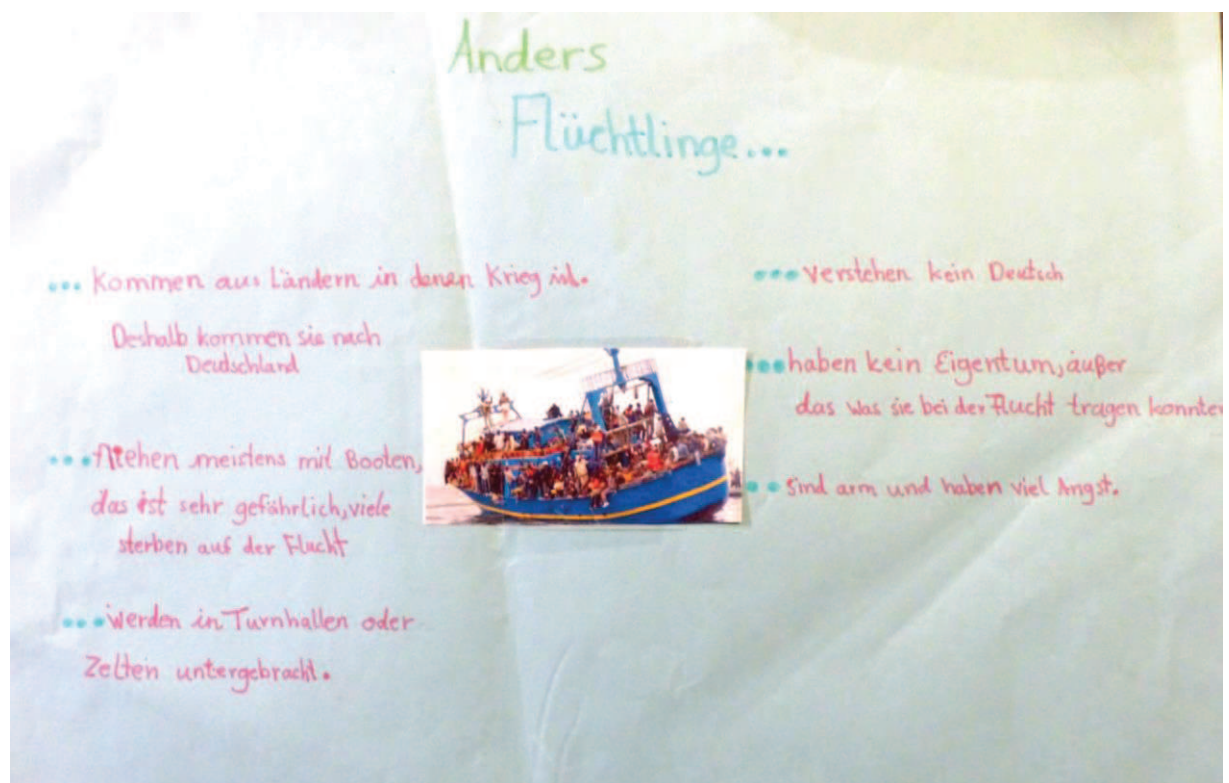 Anders
Flüchtlinge...
... kommen aus Ländern in denen Krieg ist.
Deshalb kommen sie nach
Deutschland
... fliehen meistens mit Booten,
das ist sehr gefährlich, viele
sterben auf der Flucht
... werden in Turnhallen oder
Zelten untergebracht.
... verstehen kein Deutsch
... haben kein Eigentum, außer
das was sie bei der Flucht tragen konnten
... sind arm und haben viel Angst.